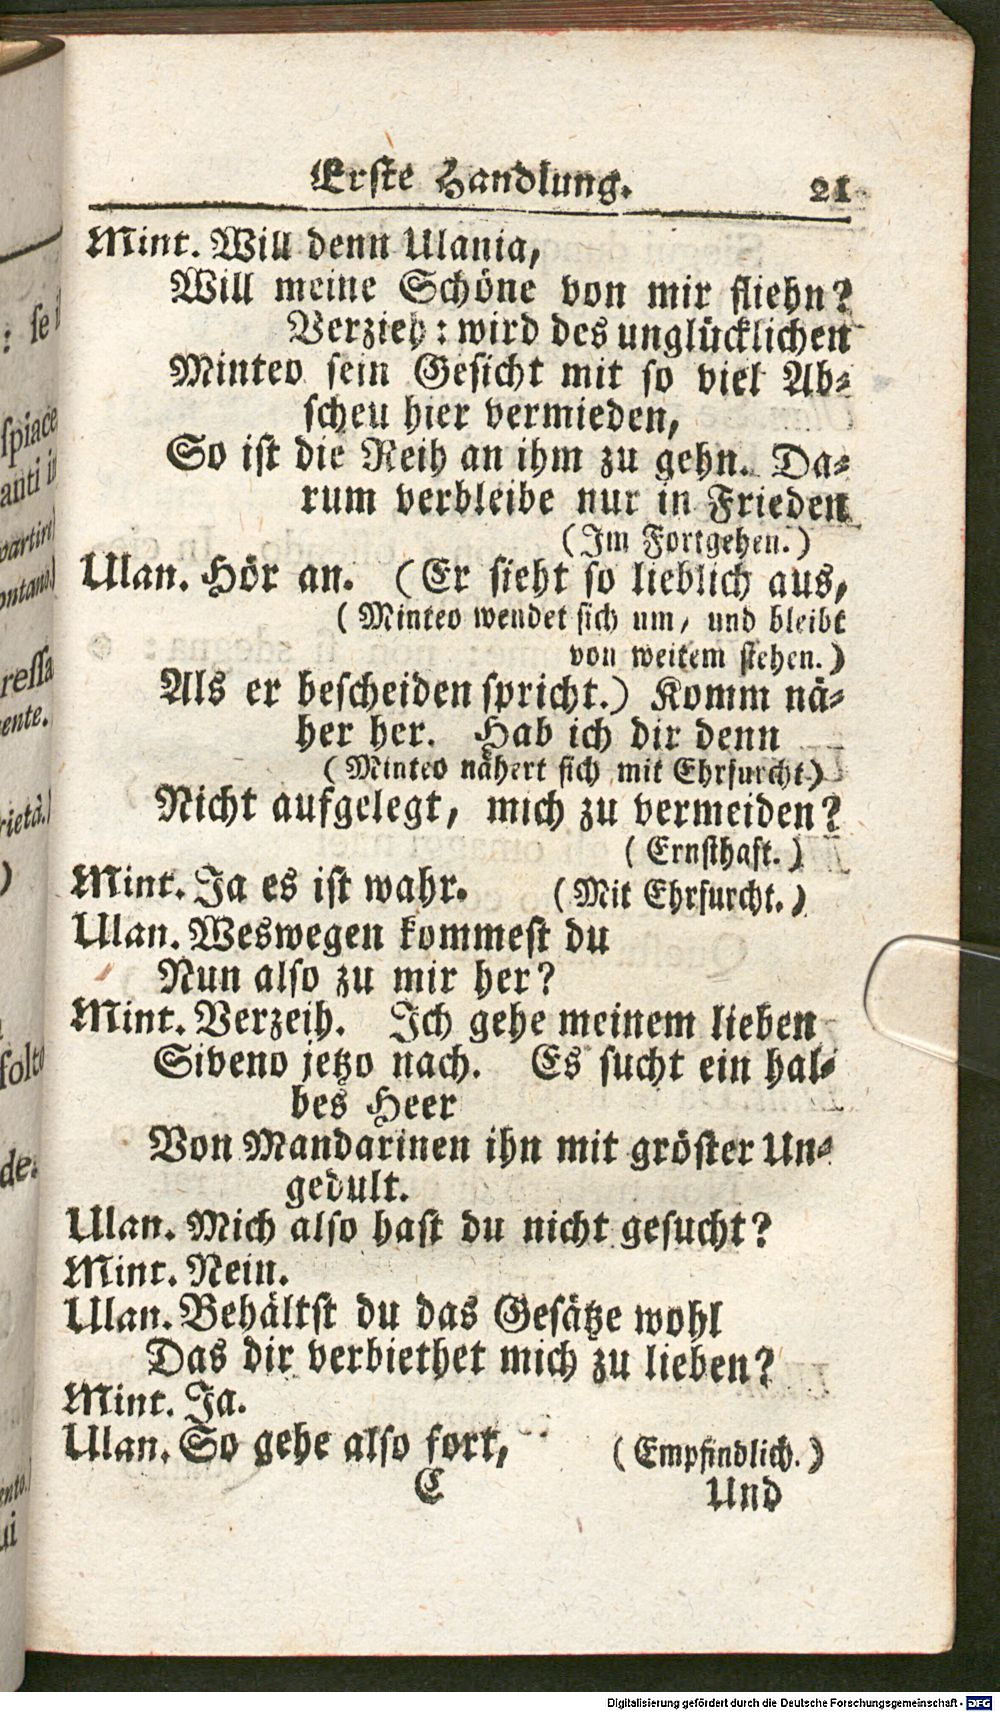 Erste Handlung. 21
Mint. Will denn Ulania,
Will meine Schöne von mir fliehn?
Verzieh: wird des unglücklichen
Minteo sein Gesicht mit so viel Ab-
scheu hier vermieden,
So ist die Reih an ihm zu gehn. Da-
rum verbleibe nur in Frieden
(Im Fortgehen.)
Ulan. Hör an. (Er sieht so lieblich aus,
(Minteo wendet sich um, und bleibt
von weitem stehen.)
Als er bescheiden spricht.) Komm nä-
her her. Hab ich dir denn
(Minteo nähert sich mit Ehrfurcht.)
Nicht aufgelegt, mich zu vermeiden?
(Ernsthaft.)
Mint. Ja es ist wahr. (Mit Ehrfurcht.)
Ulan. Weswegen kommest du
Nun also zu mir her?
Mint. Verzeih. Ich gehe meinem lieben
Siveno jetzo nach. Es sucht ein hal-
bes Heer
Von Mandarinen ihn mit gröster Un-
gedult.
Ulan. Mich also hast du nicht gesucht?
Mint. Nein.
Ulan. Behältst du das Gesätze wohl
Das dir verbiethet mich zu lieben?
Mint. Ja.
Ulan. So gehe also fort, (Empfindlich.)
C Und
: se
spiace
anti
partire
ontano.)
ressa
rietà.)
folto
de.
Digitalisierung gefördert durch die Deutsche Forschungsgemeinschaft - DFG